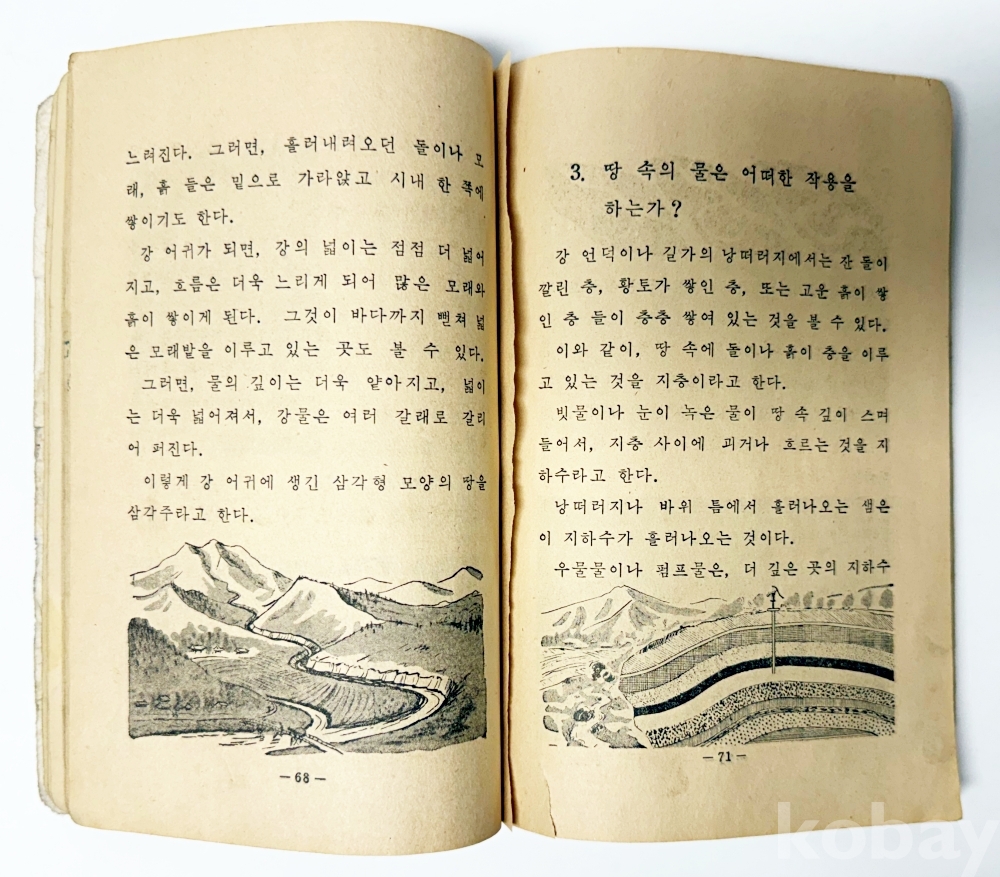 느려진다. 그러면, 흘러내려오던 돌이나 모
래, 흙 들은 밑으로 가라앉고 시내 한 쪽에
쌓이기도 한다.
강 어귀가 되면, 강의 넓이는 점점 더 넓어
지고, 흐름은 더욱 느리게 되어 많은 모래와
흙이 쌓이게 된다. 그것이 바다까지 뻗쳐 넓
은 모래밭을 이루고 있는 곳도 볼 수 있다.
그러면, 물의 깊이는 더욱 얕아지고, 넓이
는 더욱 넓어져서, 강물은 여러 갈래로 갈리
어 퍼진다.
이렇게 강 어귀에 생긴 삼각형 모양의 땅을
삼각주라고 한다.
— 68 —
3. 땅 속의 물은 어떠한 작용을
하는가?
강 언덕이나 길가의 낭떠러지에서는 잔 돌이
깔린 층, 황토가 쌓인 층, 또는 고운 흙이 쌓
인 층 들이 층층 쌓여 있는 것을 볼 수 있다.
이와 같이, 땅 속에 돌이나 흙이 층을 이루
고 있는 것을 지층이라고 한다.
빗물이나 눈이 녹은 물이 땅 속 깊이 스며
들어서, 지층 사이에 괴거나 흐르는 것을 지
하수라고 한다.
낭떠러지나 바위 틈에서 흘러나오는 샘은
이 지하수가 흘러나오는 것이다.
우물물이나 펌프물은, 더 깊은 곳의 지하수
— 71 —
kobay